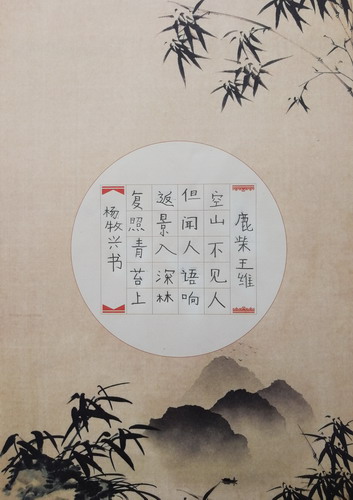 鹿柴王维
空山不见人
但闻人语响
返景入深林
复照青苔上
杨牧兴书